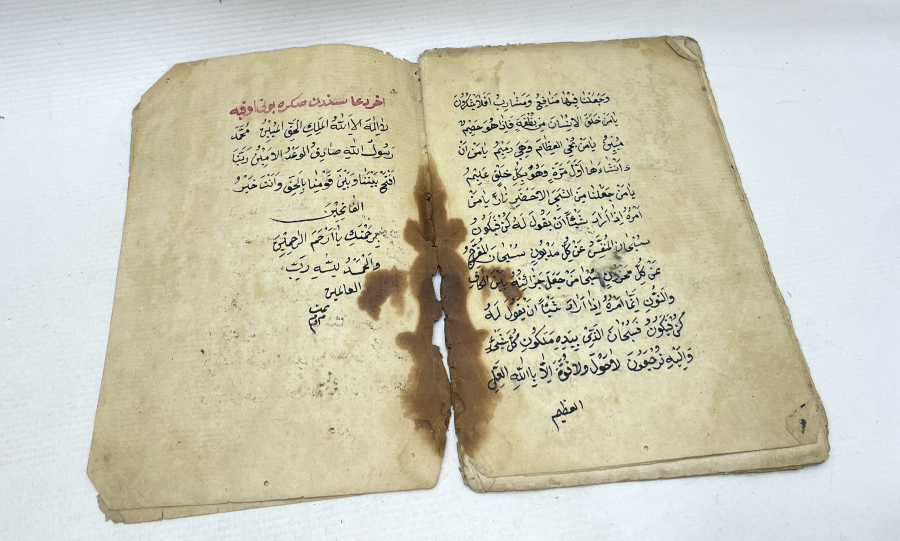 وجعلنا فيها منافع ومشارب افلا يشكرون
يا من خلق الانسان من نطفة فاذا هو خصيم
مبين يا من يحي العظام وهي رميم يا من ان
ءانشاءها اول مرة وهو بكل خلق عليم
يا من جعلنا من الشجر الاخضر نارا يا من
امره اذا اراد شيئا ان يقول له كن فيكون
سبحان المنفس عن كل مديون سبحان المفرج
عن كل محزون سبحا من جعل خزائنه بين الكاف
والنون انما امره اذا اراد شيئا ان يقول له
كن فيكون فسبحان الذي بيده ملكوت كل شئ
واليه ترجعون لا حول ولا قوة الا باالله العلي
العظيم
اخر دعا سندن صكره بونى اوقيه
لا اله الا الله الملك الحق المبين محمد
رسول الله صادق الوعد الامين ربنا
افتح بيننا وبين قومنا بالحق وانت خير
الفاتحين
برحمتك يا ارحم الرحمين
والحمد لله رب
العالمين
تمت